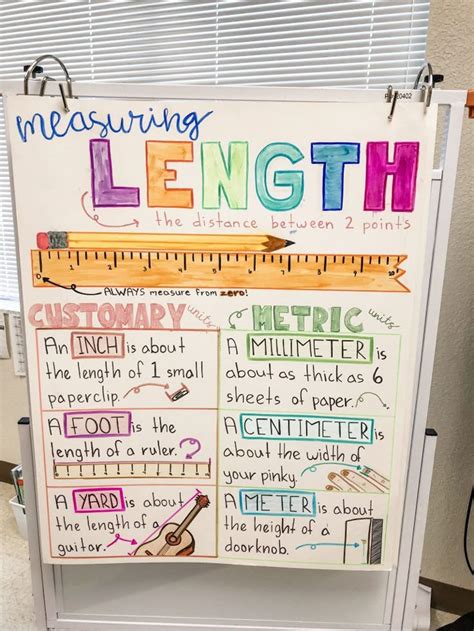 measuring
LENGTH
the distance between 2 points
1 2 3 4 5 6 7 8 9 10
0
ALWAYS measure from zero!
CUSTOMARY units
An INCH is about
the length of 1 small
paperclip.
A FOOT is the
length of a ruler.
A YARD is about
the length of a
guitar.
METRIC units
A MILLIMETER is
about as thick as 6
sheets of paper.
A CENTIMETER is
about the width of
your pinky.
A METER is about
the height of a
doorknob.